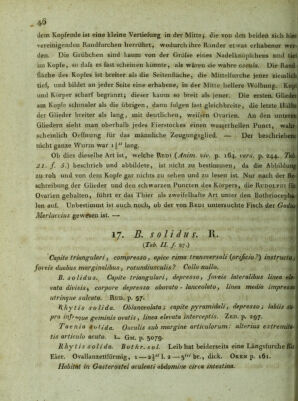 46
dem Kopfende ist eine kleine Vertiefung in der Mitte; die von den beiden sich hier
vereinigenden Randfurchen herrührt, wodurch ihre Ränder etwas erhabener wer-
den. Die Grübchen sind kaum von der Größe eines Nadelknöpfchens und tief
im Kopfe, so daß es fast scheinen könnte, als wären sie wahre oscula. Die Rand
fläche des Kopfes ist breiter als die Seitenfläche, die Mittelfurche jener ziemlich
tief, und bildet an jeder Seite eine erhabene, in der Mitte hellere Wölbung. Kopf
und Körper scharf begrünzt; dieser kaum so breit als jener. Die ersten Glieder
am Kopfe schmaler als die übrigen, dann folgen fast gleichbreite, die letzte Hälfte
der Glieder breiter als lang, mit deutlichen, weißen Ovarien. An den unteren
Gliedern sieht man oberhalb jedes Eierstockes einen wasserhellen Punct, wahr-
scheinlich Oeffnung für das männliche Zeugungsglied. — Der beschriebene
nicht ganze Wurm war 1½" lang.
Ob dies dieselbe Art ist, welche Redi (Anim. viv. p. 164. vers. p. 244. Tab.
21. f. 5.) beschrieb und abbildete, ist nicht zu bestimmen, da die Abbildung
zu roh und von dem Kopf gar nichts zu sehen und zu lesen ist. Nur nach der Be-
schreibung der Glieder und den schwarzen Puncten des Körpers, die Rudolphi für
Ovarien gehalten, führt er das Thier als zweifelhafte Art unter den Bothriocepha-
len auf. Unbestimmt ist auch noch, ob der von Redi untersuchte Fisch der Gadus
Merluccius gewesen ist. —
17. B. solidus. R.
(Tab. II. f. 27.)
Capite triangulari, compresso, apice rima transversali (orificio?) instructo,
foveis duabus marginalibus, rotundiusculis? Collo nullo.
B. solidus. Capite triangulari, depresso, foveis lateralibus linea ele-
vata divisis, corpore depresso obovato - lanceolato, linea media impressa
utrinque sulcata. Rud. p. 57.
Rhytis solida. Oblanceolata; capite pyramidali, depresso; labiis su-
pra infraque geminis ovatis, linea elevata interceptis. Zed. p. 297.
Taenia solida. Osculis sub margine articulorum: alterius extremita-
tis articulo acuto. L. Gm. p. 3079.
Rhytis solida. Bothr. sol. Leib hat beiderseits eine Längsfurche
Eier. Ovallanzettförmig, 1—2½" l. 2—5''' br., dick. Oken p. 161.
Habitat in Gasterostei aculeati abdomine circa intestina.